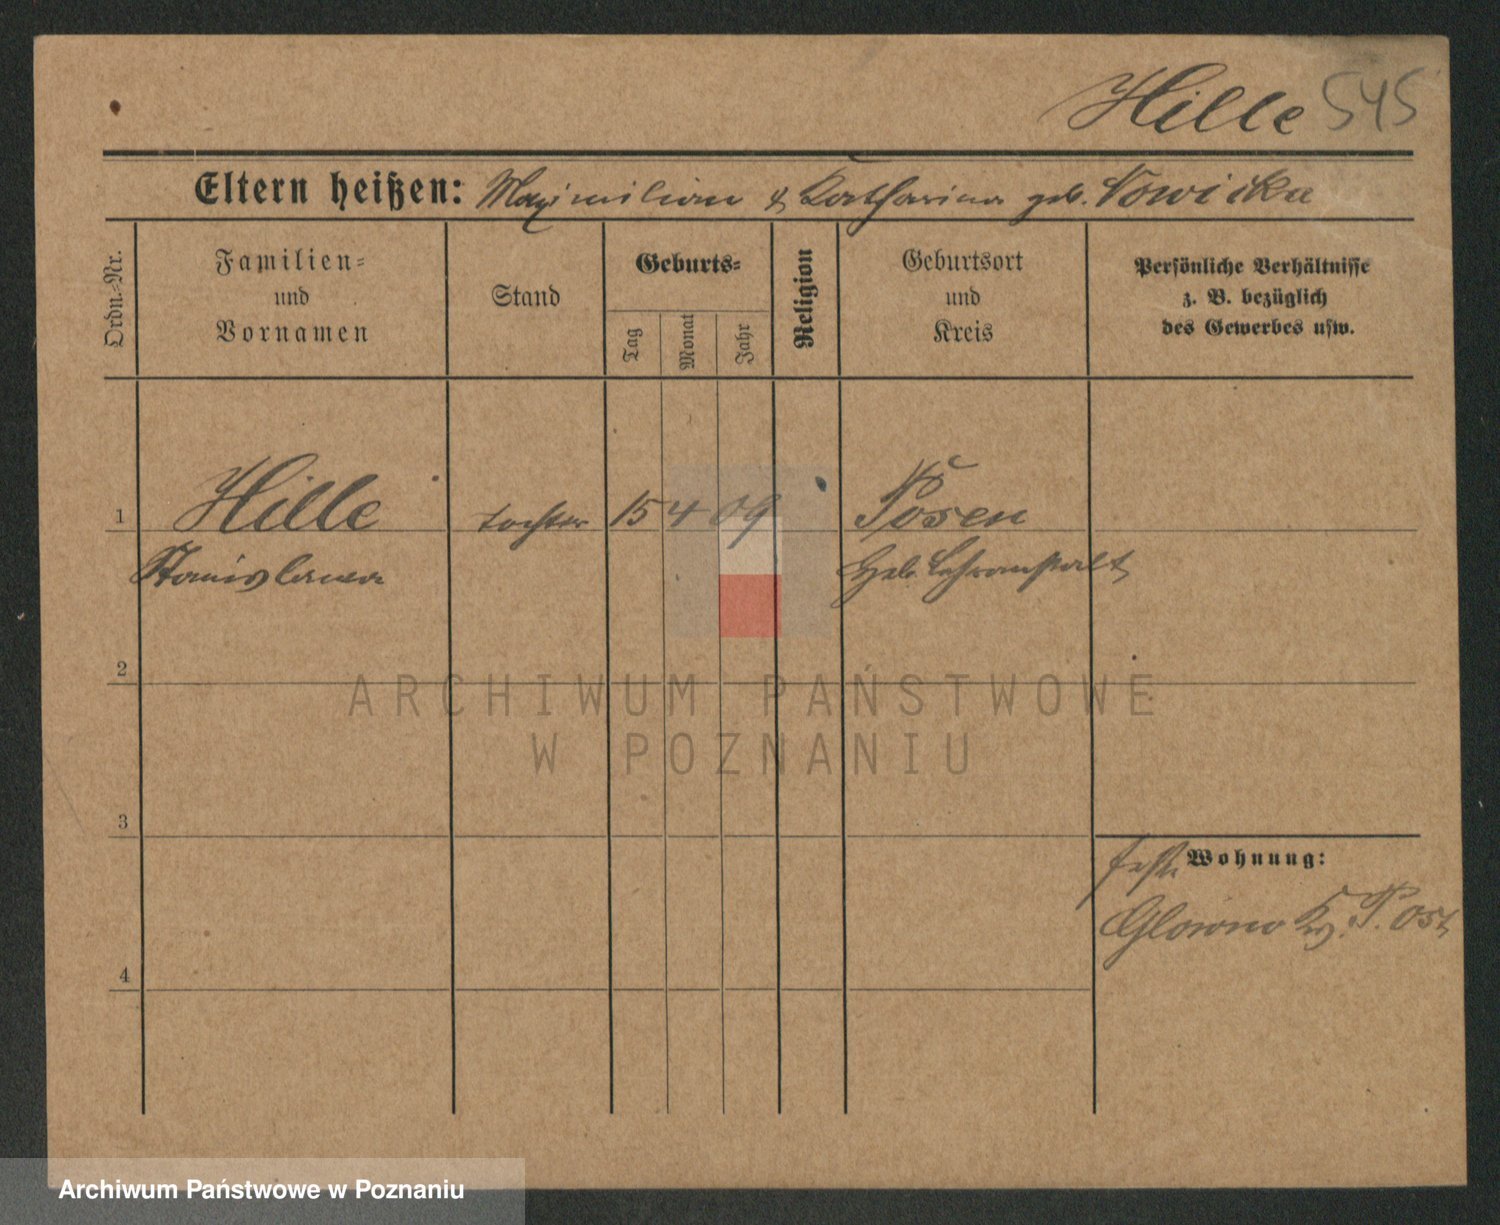 Hille 545
Eltern heißen: Maximilian & Katharina geb. Nowicka
Ordn.-Nr.
Familien-
und
Vornamen
Stand
Geburts-
Tag
Monat
Jahr
Religion
Geburtsort
und
Kreis
Persönliche Verhältnisse
z. B. bezüglich
des Gewerbes usw.
1 Hille tochter 15 4 09 Posen
Stanislawa Heb. Lehranstalt
2
ARCHIWUM PAŃSTWOWE
W POZNANIU
3
Wohnung:
Glowno Kr. P. Ost
4
Archiwum Państwowe w Poznaniu